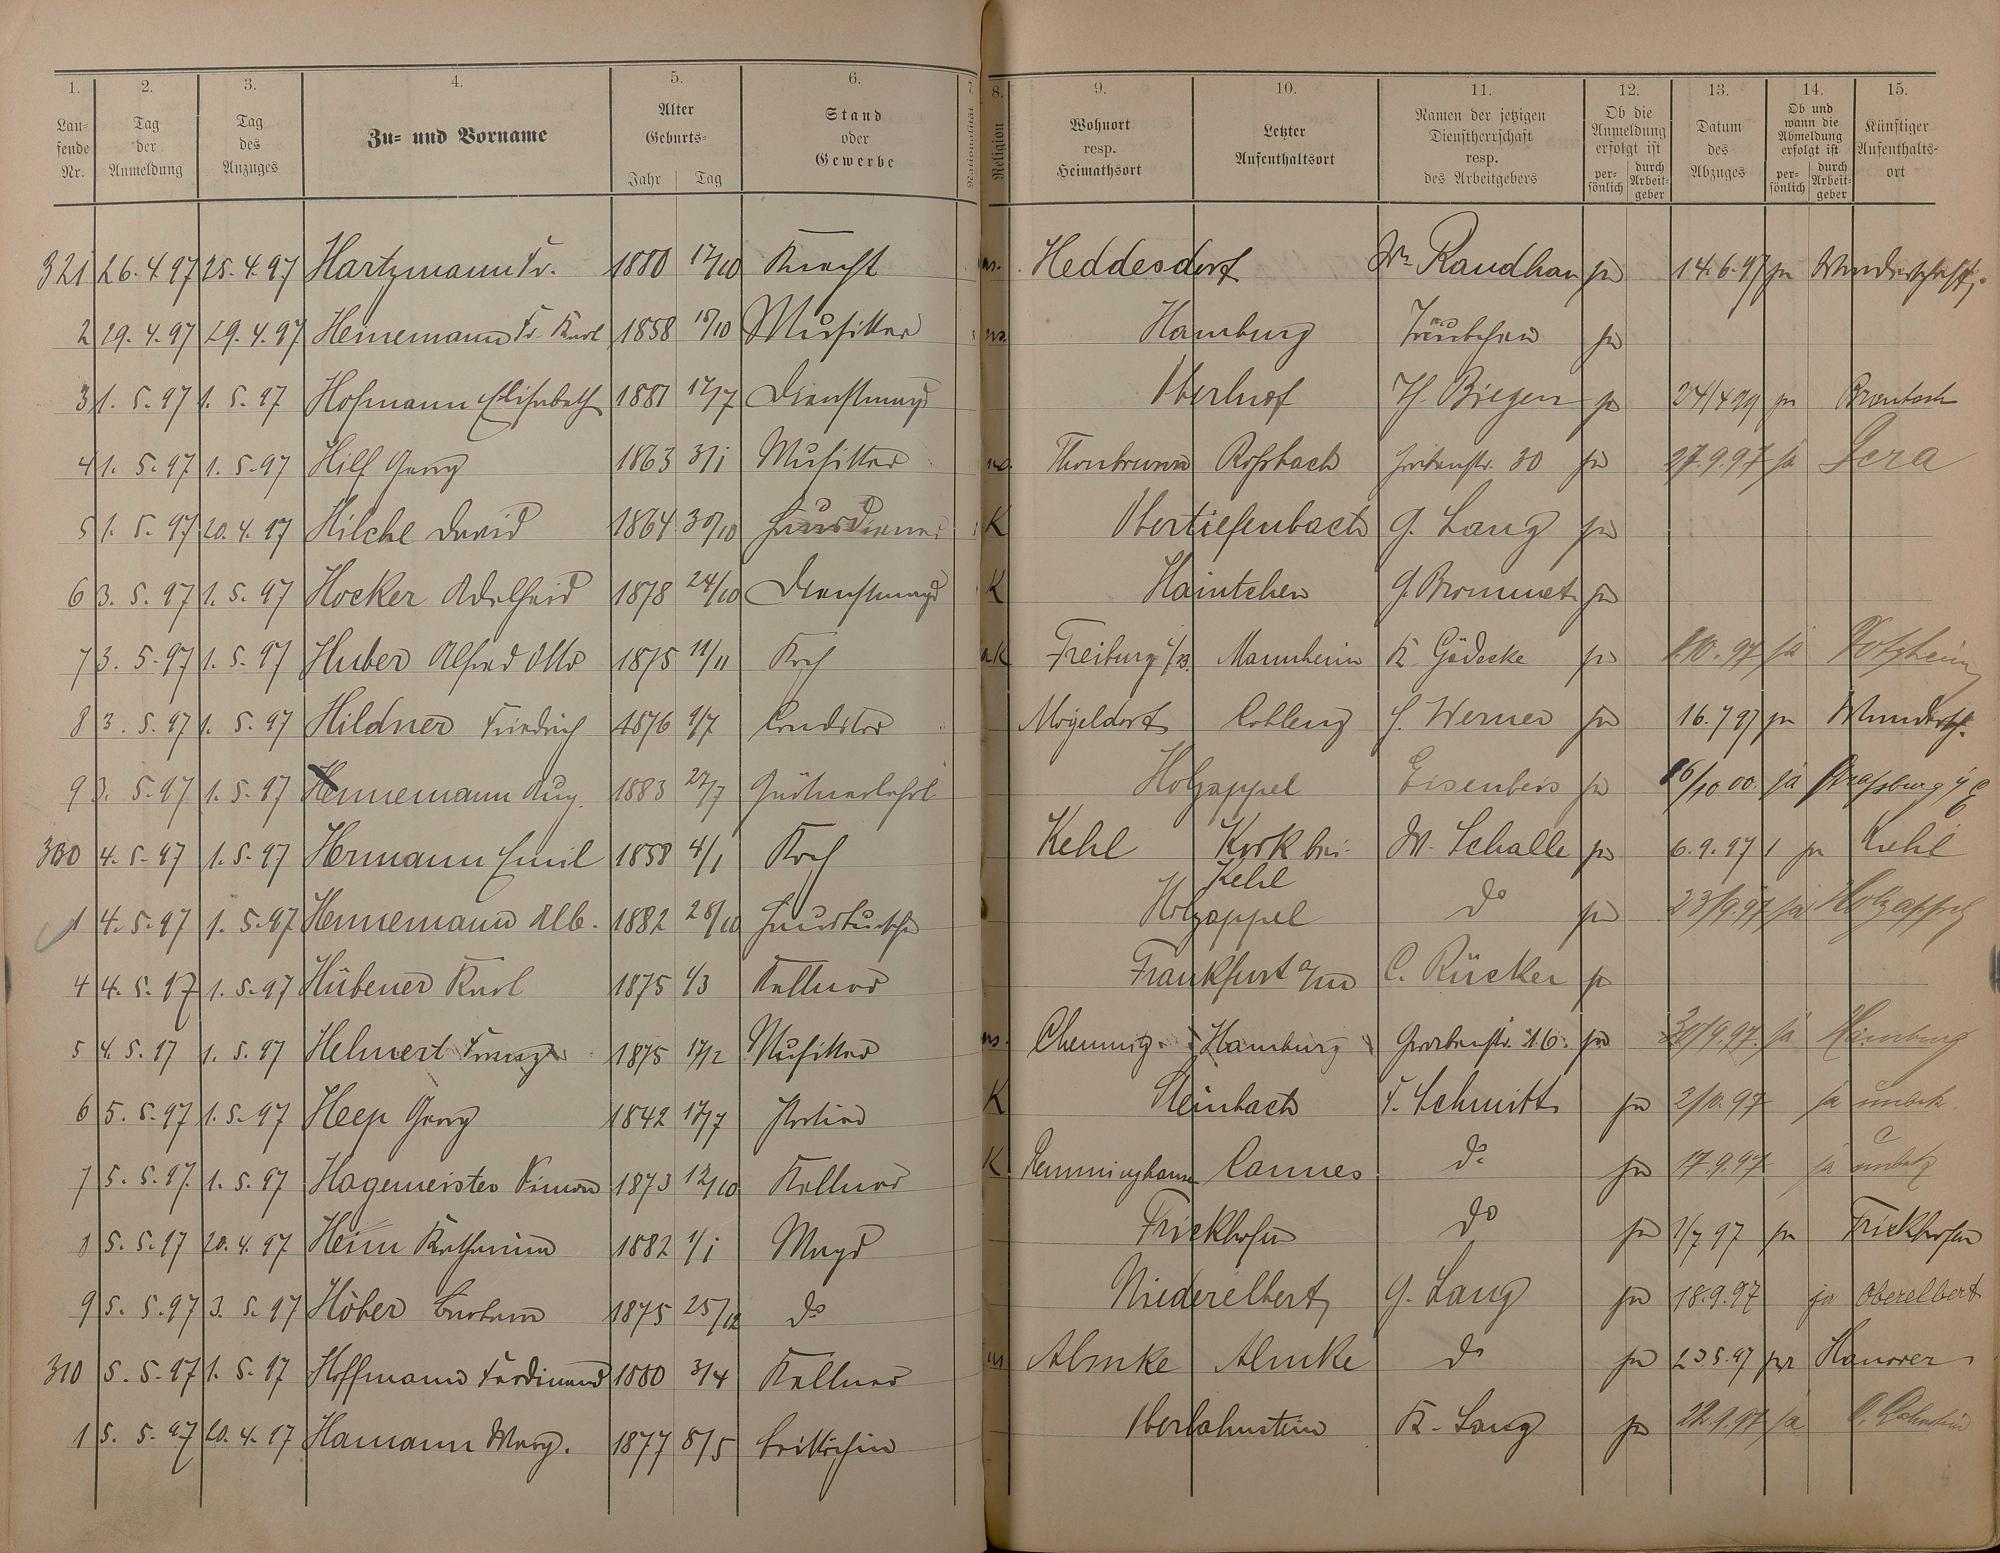 1. 2. 3. 4. 5. 6. 7. 8. 9. 10. 11. 12. 13. 14. 15.
Lau-
fende
Nr.
Tag
der
Anmeldung
Tag
des
Anzuges
Zu- und Vorname
Alter
Geburts-
Jahr Tag
Stand
oder
Gewerbe
Nationalität
Religion
Wohnort
resp.
Heimathsort
Letzter
Aufenthaltsort
Namen der jetzigen
Dienstherrschaft
resp.
des Arbeitgebers
Ob die
Anmeldung
erfolgt ist
per-
sönlich
durch
Arbeit-
geber
Datum
des
Abzuges
Ob und
wann die
Abmeldung
erfolgt ist
per-
sönlich
durch
Arbeit-
geber
Künftiger
Aufenthalts-
ort
321 26. 4. 97 25. 4. 97 Hartzmann Fr. 1880 17/10 Knecht Heddesdorf Raudhau ja 14. 6. 97 ja
2 29. 4. 97 29. 4. 97 Heinemann Fr. Karl 1858 Musiker Hamburg ja
3 1. 5. 97 1. 5. 97 Hofmann Elisabeth 1881 17/7 Dienstmagd Oberhof ja 24/4 99 ja
4 1. 5. 97 1. 5. 97 Hilf Georg 1863 3/1 Musiker Roßbach 30 ja 27. 9. 97 ja Gera
5 1. 5. 97 20. 4. 97 Hilche David 1864 30/10 Hausdiener K Obertiefenbach G. Lang ja
6 3. 5. 97 1. 5. 97 Hocker Adelheid 1878 24/10 Dienstmagd K Haintchen G. Brommet ja
7 3. 5. 97 1. 5. 97 Huber Alfred Otto 1875 11/11 Koch aK Freiburg i/B. Mannheim K Gödecke ja ja
8 3. 5. 97 1. 5. 97 Hildner Friedrich 1876 9/7 Conditor Mögeldorf Coblenz Werner ja 16. 7 97 ja Wandersch.
9 3. 5. 97 1. 5. 97 Hennemann Aug. 1883 27/7 Gärtnerlehrl Holzappel Eisenbeis ja 16/10 00. ja Strassburg i/E
330 4. 5. 97 1. 5. 97 Hermann Emil 1858 4/1 Koch Kehl Kork bei Kehl W. Schalle ja 6. 9. 97 ja Kehl
1 4. 5. 97 1. 5. 97 Hennemann Alb. 1882 28/10 Hausbursche Holzappel do ja 23/9. 97 ja Holzappel
4 4. 5. 97 1. 5. 97 Hübener Karl 1875 1/3 Kellner Frankfurt a/m C. Rücker ja
5 4. 5. 97 1. 5. 97 Helmert Franz 1875 17/2 Musiker Chemnitz Hamburg Grabenstr. 16. ja 30/9. 97. ja Hamburg
6 5. 5. 97 1. 5. 97 Heep Georg 1842 17/7 Portier K Steinbach F. Schmitt ja 2/10. 97 ja unbek.
7 5. 5. 97. 1. 5. 97 Hagemeister Simon 1873 12/10 Kellner K Cannes do ja 17. 9. 97 ja unbek
8 5. 5. 97 20. 4. 97 Heim Katharina 1882 1/1 Magd Frickhofen do ja 1/7 97 ja Frickhofen
9 5. 5. 97 3. 5. 97 Höber Barbara 1875 25/12 do Niederelbert G. Lang ja 18. 9. 97 ja Oberelbert
310 5. 5. 97 1. 5. 97 Hoffmann Ferdinand 1880 3/4 Kellner Almke Almke do ja 23 5. 97 ja Hanover
1 5. 5. 97 20. 4. 97 Hamann Marg. 1877 8/5 Beiköchin Oberlahnstein K. Lang ja 22. 9. 97 ja O. Lahnstein